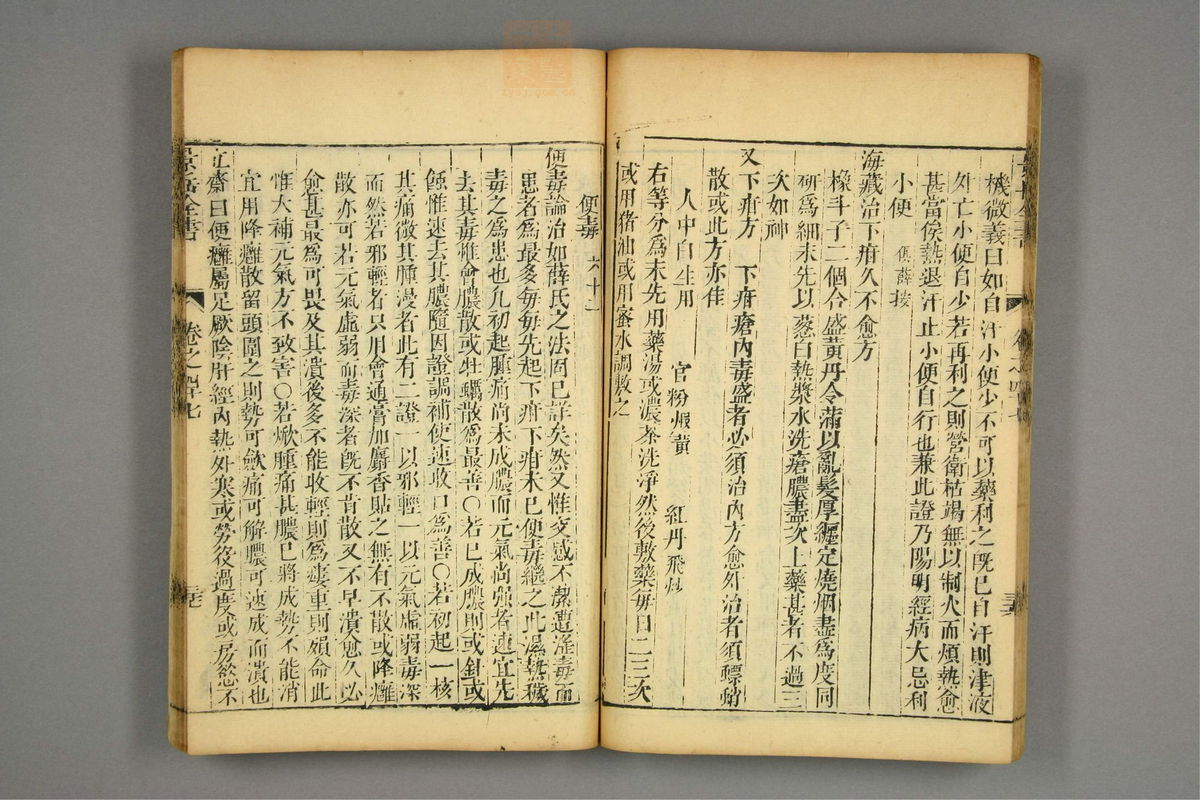 機微義曰如自汗小便少不可以藥利之旣已自汗則津液
外亡小便自少若再利之則營衛枯竭無以制火而煩熱愈
甚當俟熱退汗止小便自行也兼此證乃陽明經病大忌利
小便 俱薛按
海藏治下疳久不愈方
椽斗子二個合盛黃丹令滿以亂髮厚纏定燒烟盡爲度同
研爲細末先以葱白熱漿水洗瘡膿盡次上藥甚者不過三
次如神
又下疳方 下疳瘡內毒盛者必須治內方愈外治者須螵蛸
散或此方亦佳
人中白生用 官粉煆黃 紅丹飛炒
右等分爲末先用藥湯或濃茶洗淨然後敷藥每日二三次
或用猪油或用蜜水調敷之
便毒 六十一
便毒論治如薛氏之法固已詳矣然又惟交感不潔遭淫毒而
患者爲最多每每先起下疳下疳未已便毒繼之此濕熱穢
毒之爲患也凡初起腫痛尚未成膿而元氣尚强者速宜先
去其毒惟會膿散或牡蠣散爲最善〇若已成膿則或針或
蝕惟速去其膿隨因證調補使速收口爲善〇若初起一核
其痛微其腫漫者此有二證一以邪輕一以元氣虛弱毒深
而然若邪輕者只用會通膏加麝香貼之無有不散或降癰
散亦可若元氣虛弱而毒深者旣不肯散又不早潰愈久必
愈甚最爲可畏及其潰後多不能收輕則爲瘻重則殞命此
惟大補元氣方不致害〇若焮腫痛甚膿已將成勢不能消
宜用降癰散留頭圍之則勢可斂痛可解膿可速成而潰也
立齋曰便癰屬足厥陰肝經內熱外寒或勞役過度或房慾不
景岳全書 卷之四十七